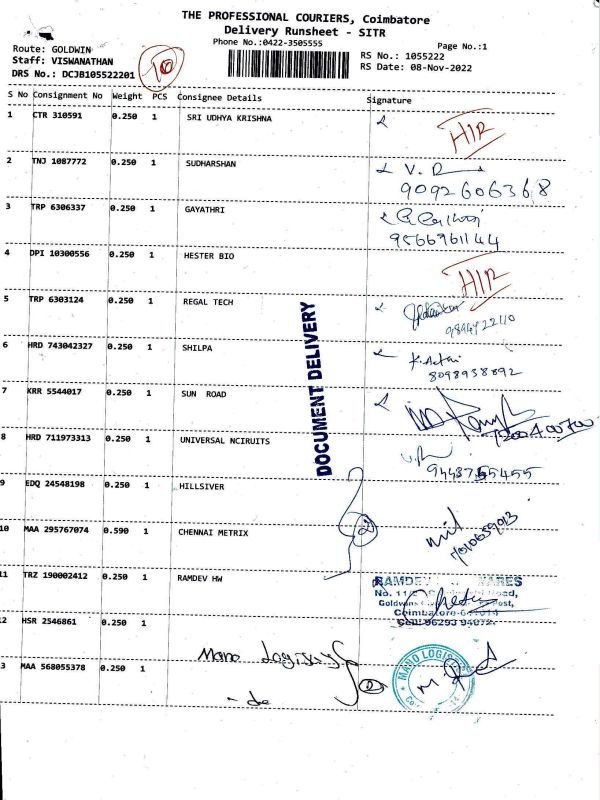 THE PROFESSIONAL COURIERS, Coimbatore
Delivery Runsheet - SITR
Phone No.:0422-3505555
Page No.:1
Route: GOLDWIN
RS No.: 1055222
Staff: VISWANATHAN
RS Date: 08-Nov-2022
DRS No.: DCJB105522201
10
S No Consignment No Weight PCS Consignee Details Signature
1 CTR 310591 0.250 1 SRI UDHYA KRISHNA
2 TNJ 1087772 0.250 1 SUDHARSHAN
9092606368
3 TRP 6306337 0.250 1 GAYATHRI
9566961144
4 DPI 10300556 0.250 1 HESTER BIO
5 TRP 6303124 0.250 1 REGAL TECH
6 HRD 743042327 0.250 1 SHILPA
8098938892
7 KRR 5544017 0.250 1 SUN ROAD
8 HRD 711973313 0.250 1 UNIVERSAL NCIRUITS
9443755455
9 EDQ 24548198 0.250 1 HILLSIVER
10 MAA 295767074 0.590 1 CHENNAI METRIX
2
11 TRZ 190002412 0.250 1 RAMDEV HW
RAMDEV
2 HSR 2546861 0.250 1
3 MAA 568055378 0.250 1
Mano Logistics
MANO LOGIS
DOCUMENT DELIVERY